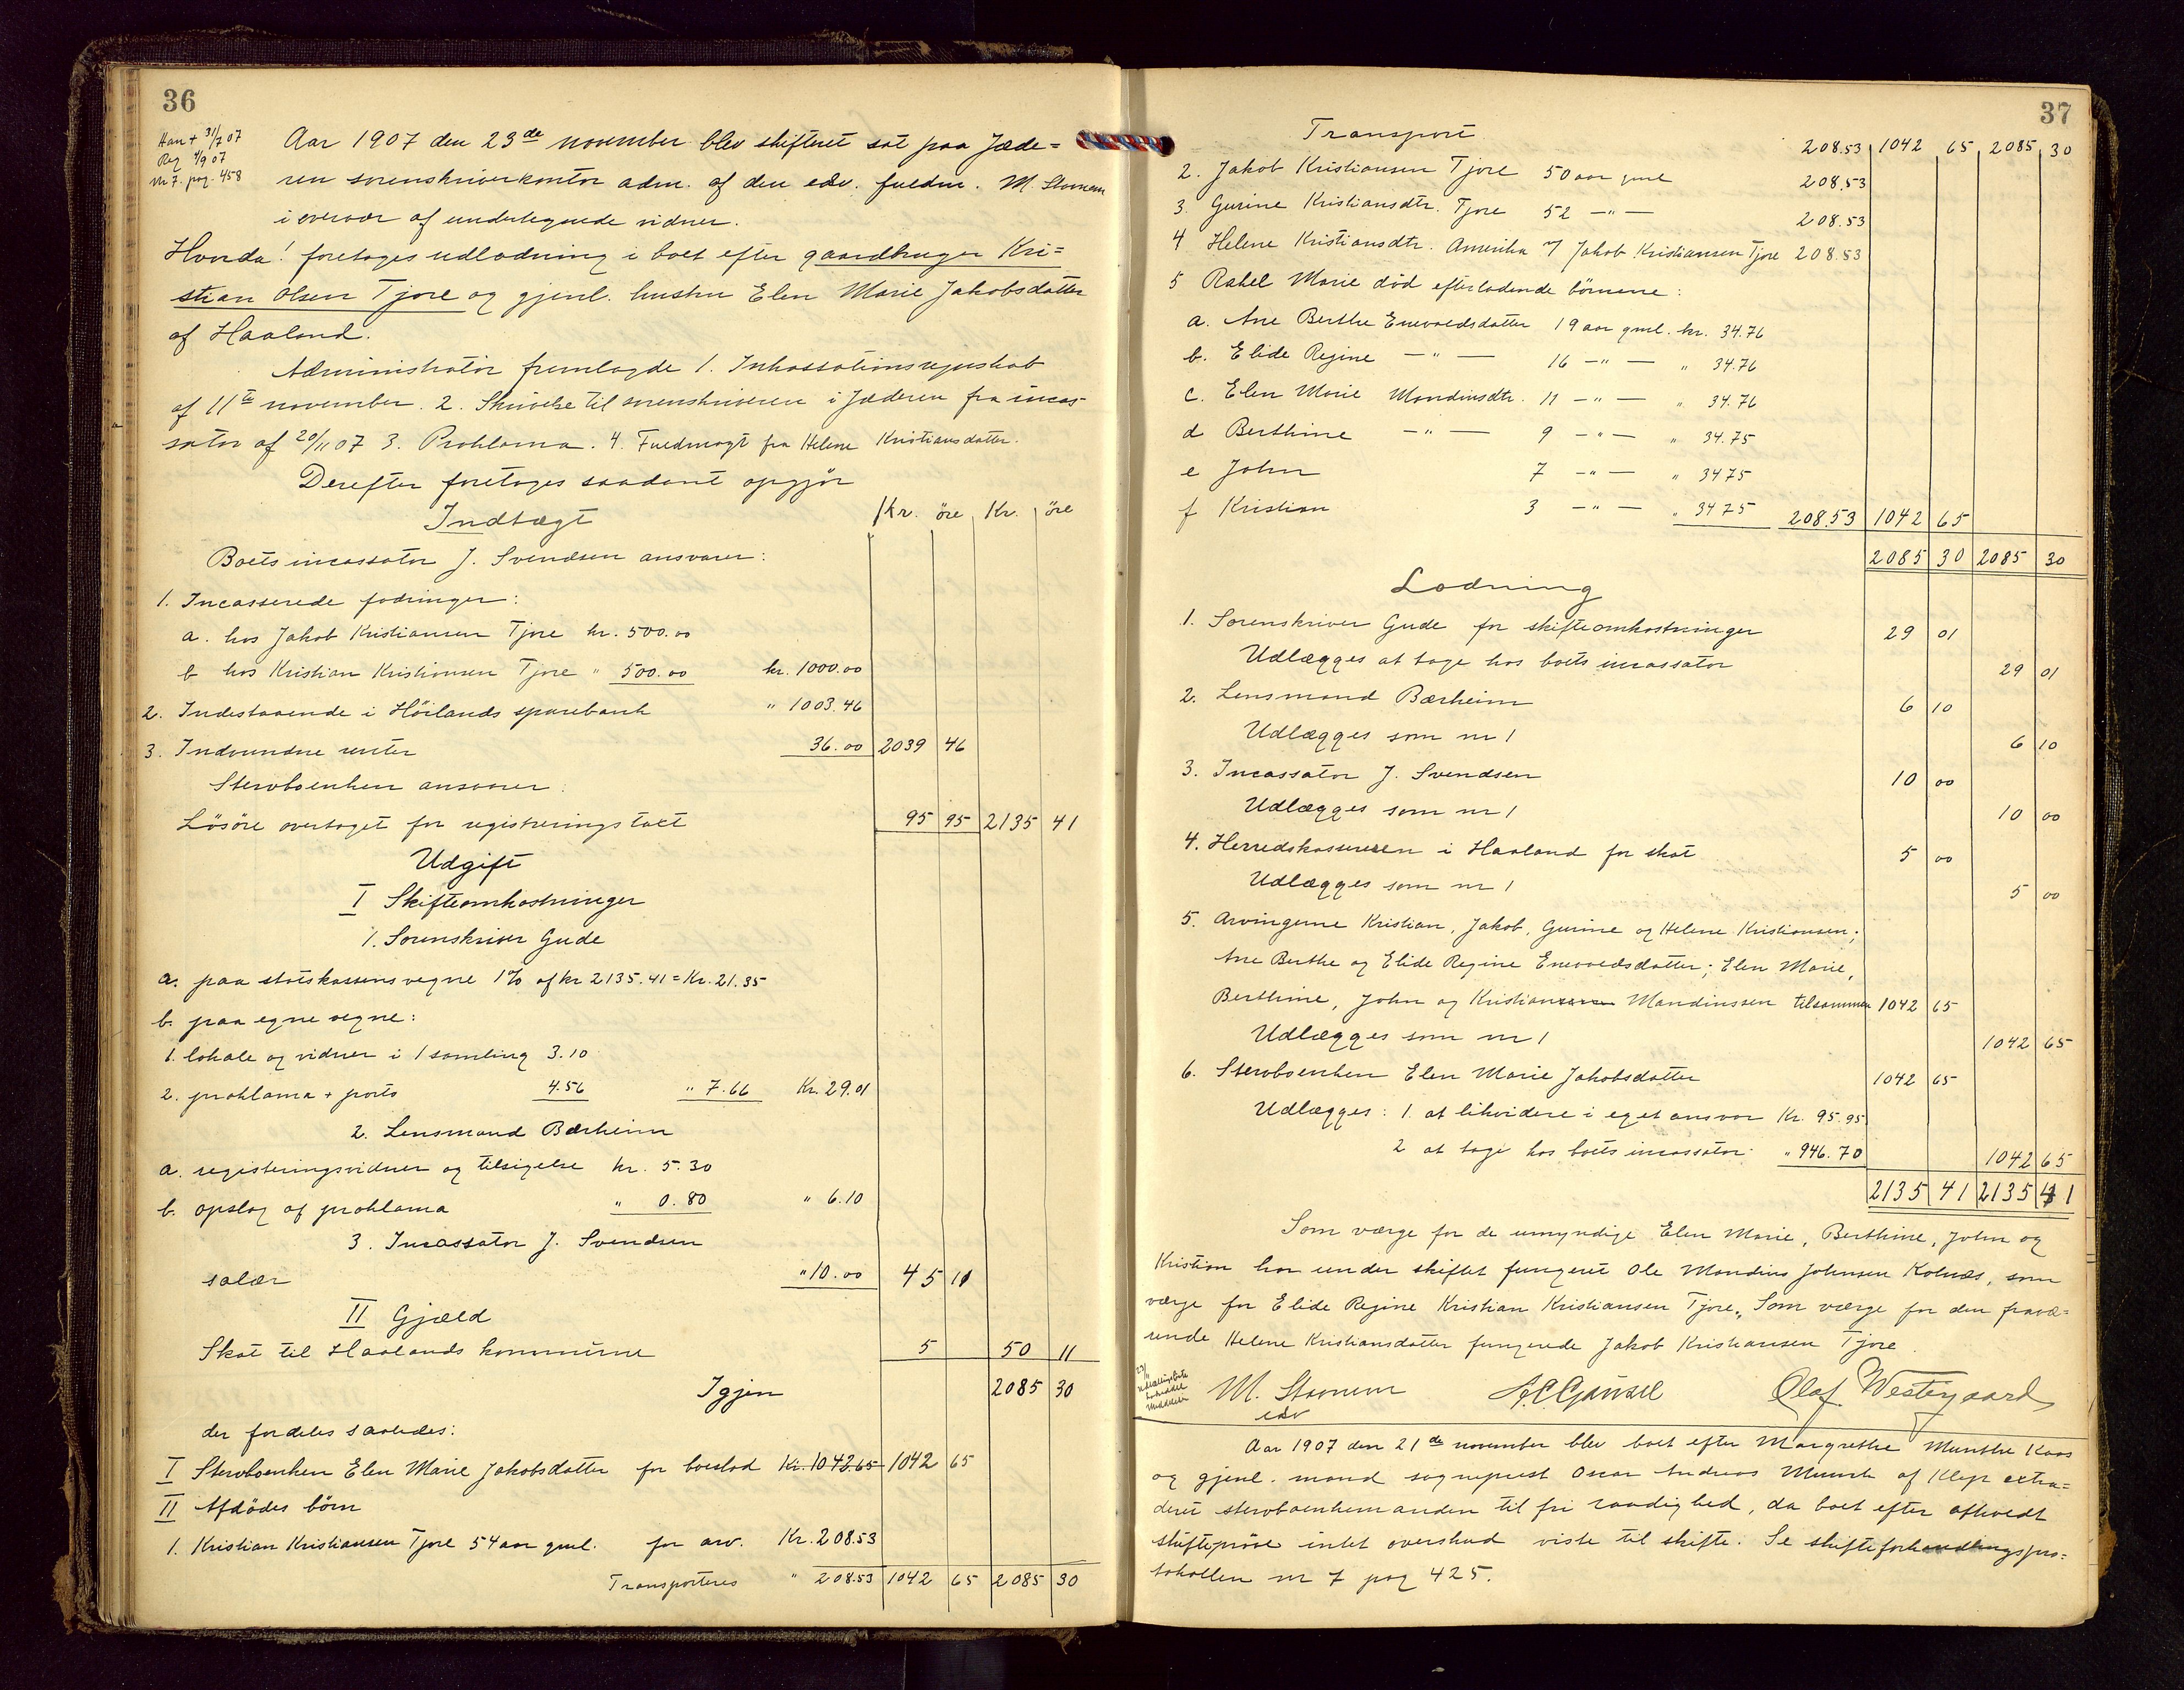 36
Han + 31/7 07
Reg 4/9 07
nr 7. pag. 458
Aar 1907 den 23de november blev skifteret sat paa Jæde=
ren sorenskriverkontor adm. af den edv. fuldm. M. Stornem
i overvær af undertegnede vidner.
Hvorda! foretoges udlodning i boet efter gaardbruger Kri=
stian Olsen Tjore og gjenl. hustru Elen Marie Jakobsdatter
af Haaland.
Administrator fremlagde 1. Inkassationsregnskab
af 11te november. 2. Skrivelse til sorenskriveren i Jæderen fra incas-
sator af 20/11 07 3. Proklama. 4. Fuldmagt fra Helene Kristiansdatter.
Derefter foretoges saadant opgjör
Indtægt Kr. öre Kr. öre
Boets incassator J. Svendsen ansvarer:
1. Incasserede fodringer:
a. hos Jakob Kristiansen Tjore kr. 500.00
b hos Kristian Kristiansen Tjore " 500.00 kr. 1000.00
2. Indestaaende i Höilands sparebank " 1003.46
3. Indvundne renter 36.00 2039 46
Stervboenken ansvarer:
Lösöre overtaget for registreringstaxt 95 95 2135 41
Udgift
I Skifteomkostninger
1. Sorenskriver Gude
a. paa statskassens vegne 1% af kr 2135.41 = Kr. 21.35
b. paa egne vegne:
1. lokale og vidner i 1 samling 3.10
2. proklama + porto 4.56 " 7.66 Kr. 29.01
2. Lensmand Bærheim
a. registeringsvidner og tilsigelse kr. 5.30
b. opslag af proklama " 0.80 " 6.10
3. Incassator J. Svendsen
salær " 10.00 45 11
II Gjæld
Skat til Haalands kommune 5 50 11
Igjen 2085 30
der fordeles saaledes:
I Stervboenken Elen Marie Jakobsdatter for boeslod Kr. 1042.65 1042 65
II Afdödes börn
1. Kristian Kristiansen Tjore 54 aar gml. for arv. Kr. 208.53
Transporteres " 208.53 1042 65 2085 30
37
Transport 208.53 1042 65 2085 30
2. Jakob Kristiansen Tjore 50 aar gml 208.53
3. Gurine Kristiansdtr. Tjore 52 —"— 208.53
4 Helene Kristiansdtr. Amerika v/ Jakob Kristiansen Tjore 208.53
5 Rakel Marie död efterladende börnene:
a. Ane Berthe Enevoldsdatter 19 aar gml. kr. 34.76
b. Elide Regine —"— 16 —"— " 34.76
c. Elen Marie Mandiusdtr. 11 —"— " 34.76
d Berthine —"— 9 —"— " 34.75
e John 7 —"— " 34 75
f Kristian 3 —"— " 34 75 208.53 1042 65
2085 30 2085 30
Lodning
1. Sorenskriver Gude for skifteomkostninger 29 01
Udlægges at tage hos boets incassator 29 01
2. Lensmand Bærheim 6 10
Udlægges som nr 1 6 10
3. Incassator J. Svendsen 10 00
Udlægges som nr 1 10 00
4. Herredskassereren i Haaland for skat 5 00
Udlægges som nr 1 5 00
5. Arvingerne Kristian, Jakob, Gurine og Helene Kristiansen;
Ane Berthe og Elide Regine Enevoldsdatter; Elen Marie,
Berthine, John og Kristian Mandiussen tilsammen 1042 65
Udlægges som nr 1 1042 65
6. Stervboenken Elen Marie Jakobsdatter 1042 65
Udlægges: 1. at likvidere i eget ansvar Kr. 95.95
2 at tage hos boets incassator " 946.70 1042 65
2135 41 2135 41
Som værge for de umyndige Elen Marie, Berthine, John og
Kristian har under skiftet fungeret Ole Mandius Johnsen Kolnæs, som
værge for Elide Regine Kristian Kristiansen Tjore. Som værge for den fravæ=
rende Helene Kristiansdatter fungerede Jakob Kristiansen Tjore.
M. Stornem Olaf Westergaard
edv
Aar 1907 den 21de november blev boet efter Margrethe Munthe Kaas
og gjenl. mand sogneprest Oscar Andreas Munch af Klep extra=
deret stervboenkemanden til fri raadighed, da boet efter afholdt
skifteprøve intet overskud viste til skifte. Se skifteforhandlingspro=
tokollen nr 7 pag 425.